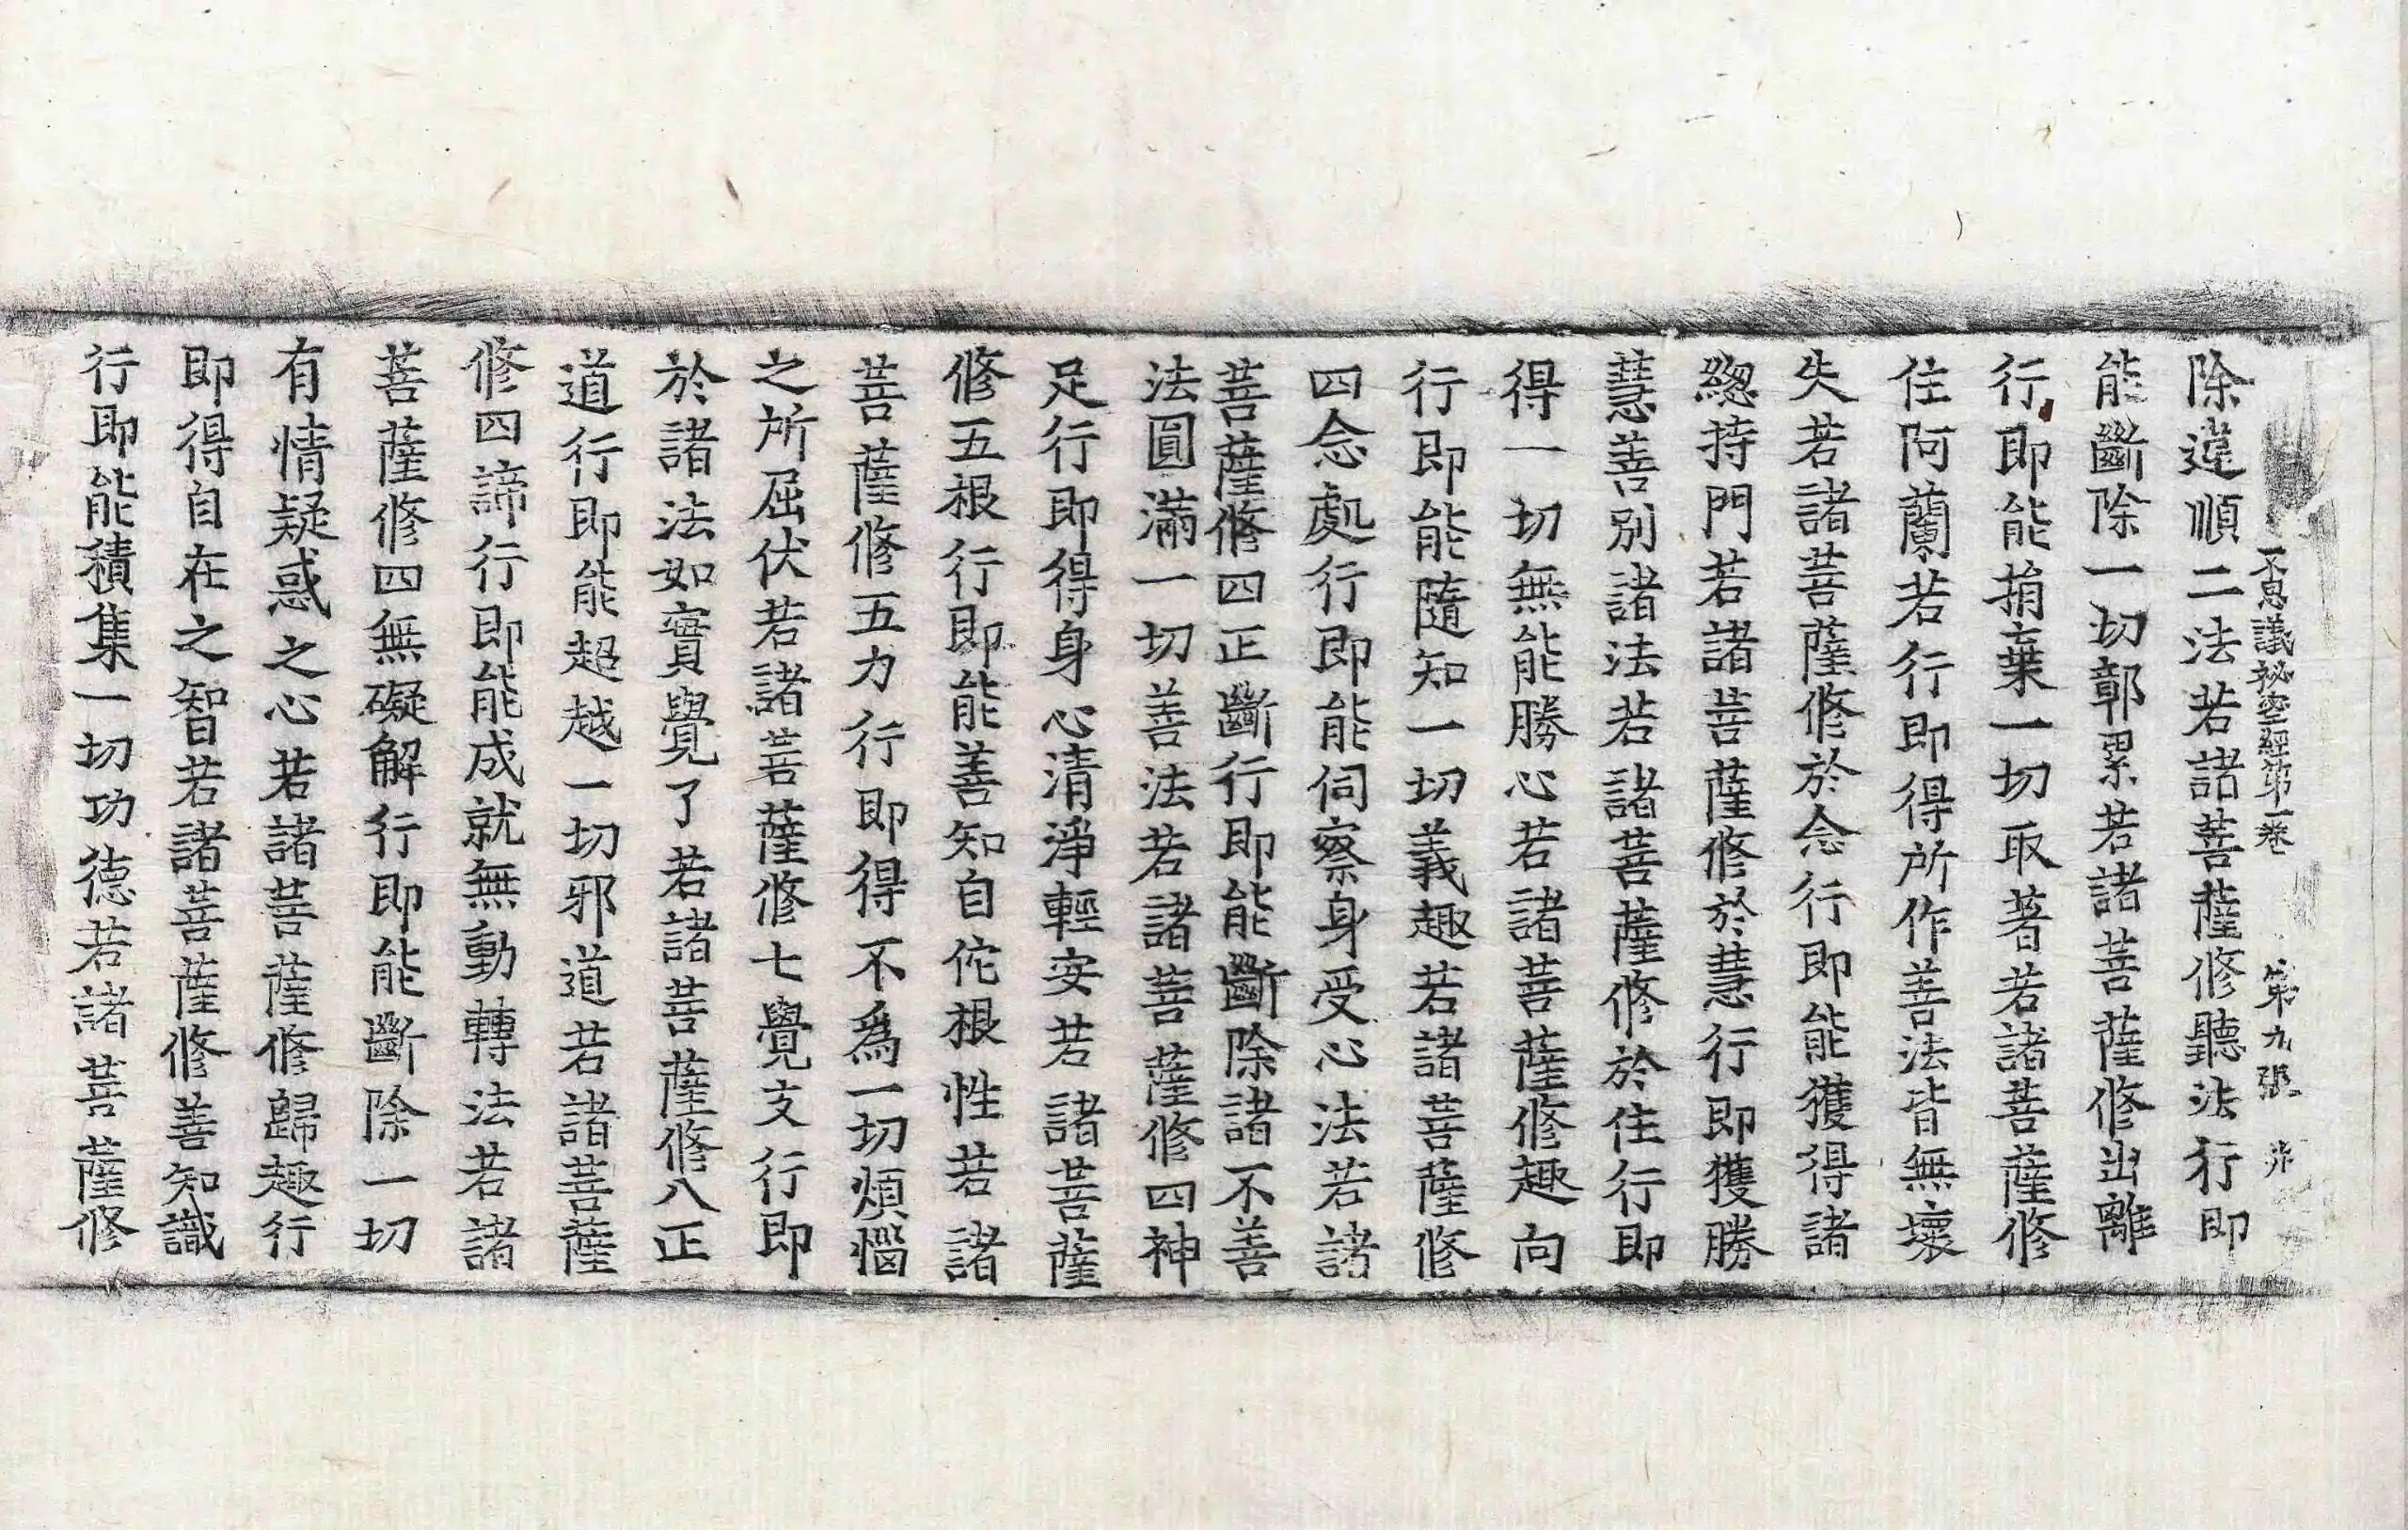 不思議祕密經第一卷 第九張
除違順二法若諸菩薩修聽法行即
能斷除一切鄣累若諸菩薩修出離
行即能捐棄一切取著若諸菩薩修
住阿蘭若行即得所作善法皆無壞
失若諸菩薩修於念行即能獲得諸
緫持門若諸菩薩修於慧行即獲勝
慧善別諸法若諸菩薩修於住行即
得一切無能勝心若諸菩薩修趣向
行即能隨知一切義趣若諸菩薩修
四念處行即能伺察身受心法若諸
菩薩修四正斷行即能斷除諸不善
法圓滿一切善法若諸菩薩修四神
足行即得身心清淨輕安若諸菩薩
修五根行即能善知自佗根性若諸
菩薩修五力行即得不爲一切煩惱
之所屈伏若諸菩薩修七覺支行即
於諸法如實覺了若諸菩薩修八正
道行即能超越一切邪道若諸菩薩
修四諦行即能成就無動轉法若諸
菩薩修四無礙解行即能斷除一切
有情疑惑之心若諸菩薩修歸趣行
即得自在之智若諸菩薩修善知識
行即能積集一切功德若諸菩薩修